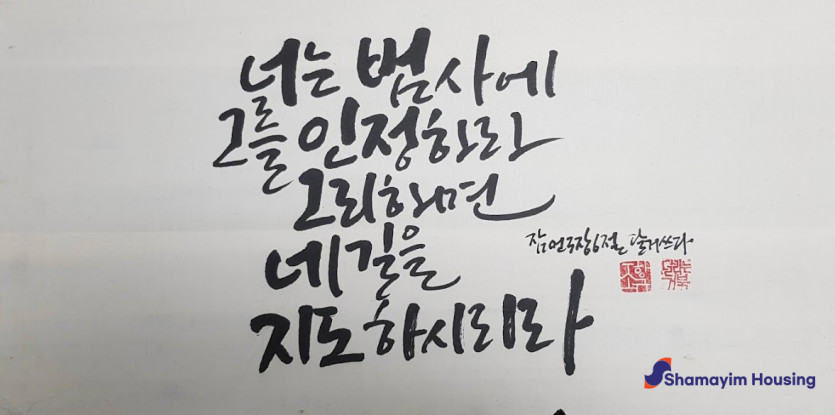 너는 범사에
그를 인정하라
그리하면
네 길을
지도하시리라
잠언 3장 6절 달려쓰다
Shamayim Housing